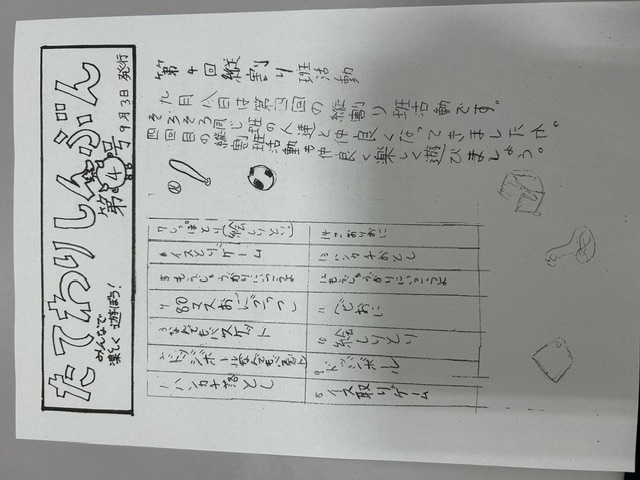 たてわりしんぶん
第4号
9月3日発行
みんなで
楽しく遊ぼう!
第4回縦割り班活動
九月八日は第四回の縦割り班活動です。
そろそろ同じ班の人達と仲良くなってきましたか。
四回目の縦割班活動も仲良く楽しく遊びましょう。
1 ハンカチ落とし
2 ドッジボール
3 なんでもバスケット
4
5
6 イスとりゲーム
7 しっぽとり(絵しりとり)
8 イス取りゲーム
9 ドッジボール
10 絵しりとり
11
12
13 ハンカチおとし
14 こおりおに